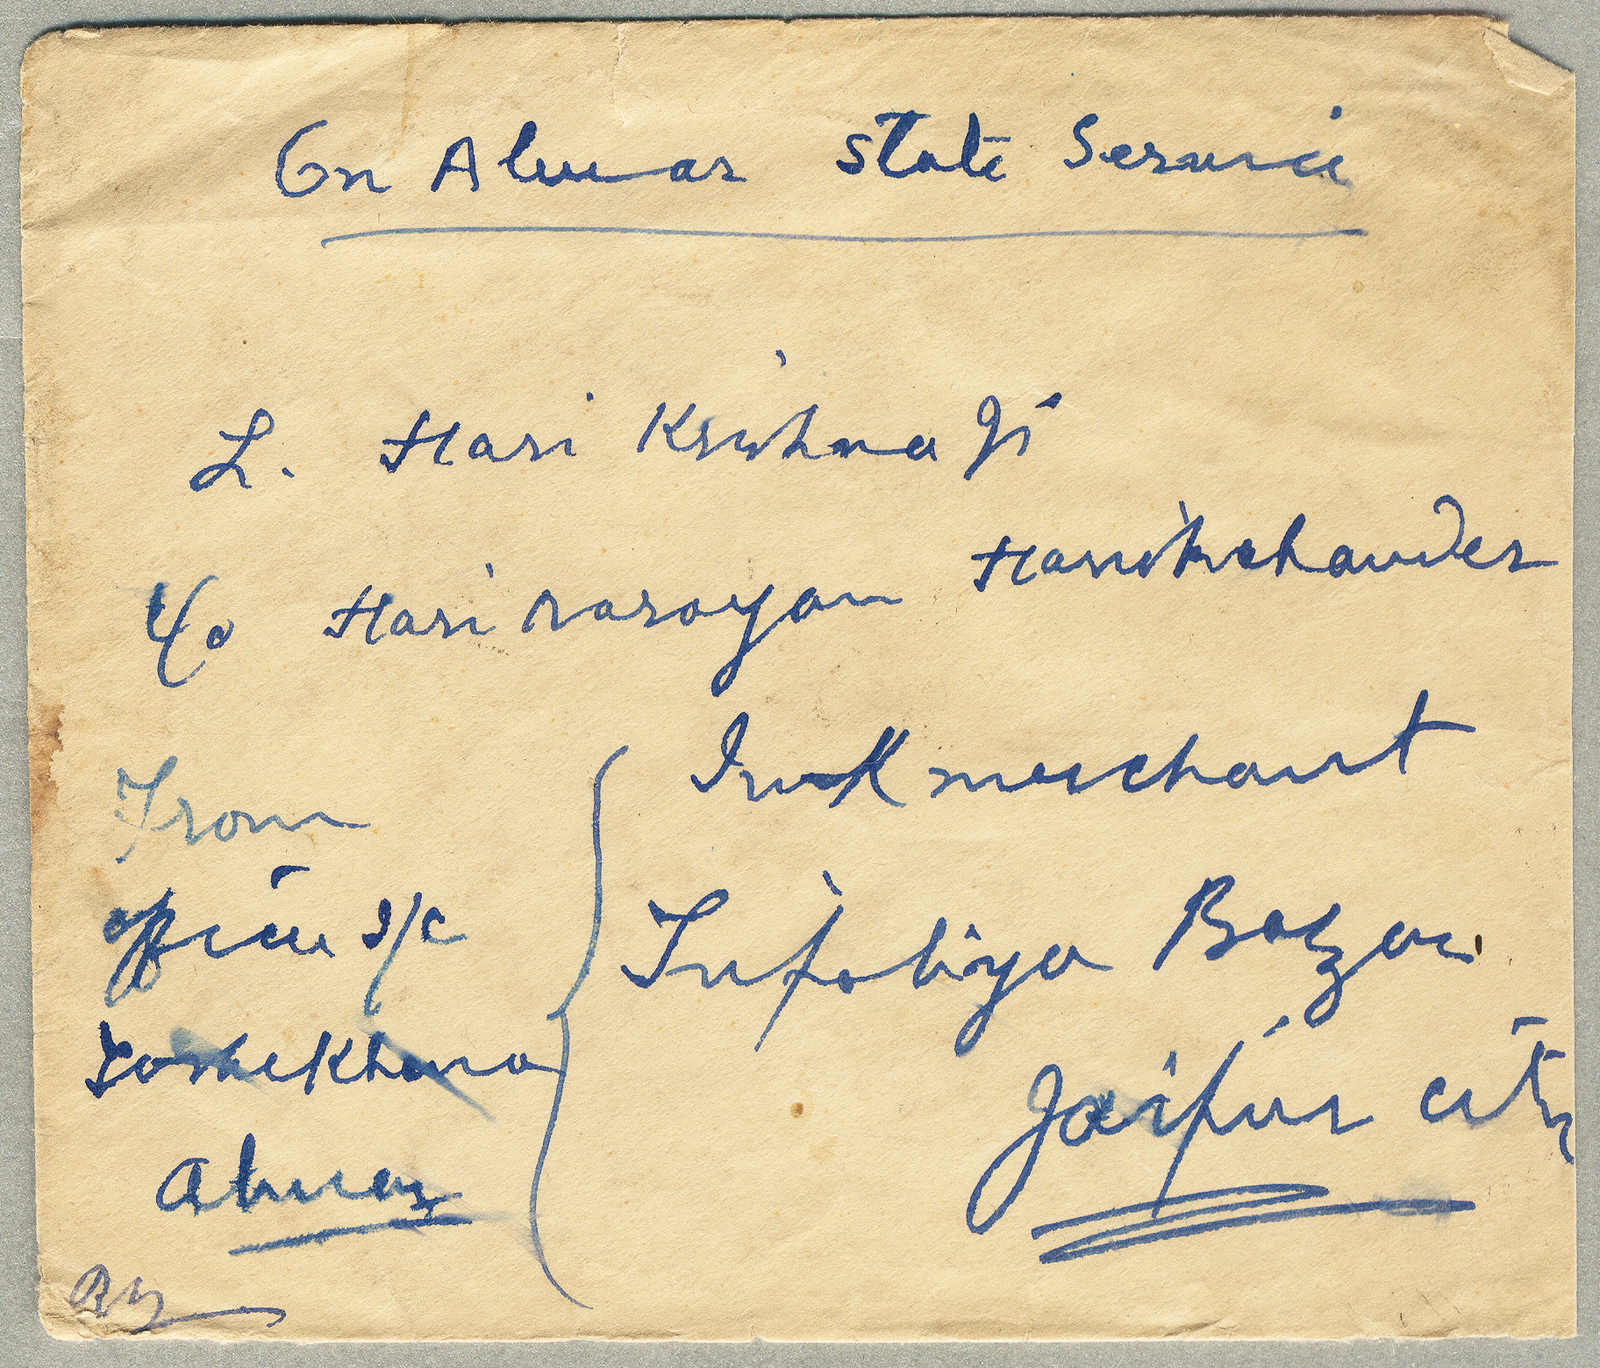 On Alwar State Service
L. Hari Krishna Ji
C/o Hari narayan Harishchander
Trunk merchant
Tripoliya Bazar
Jaipur City
From
office I/C
Toshekhana
Alwar